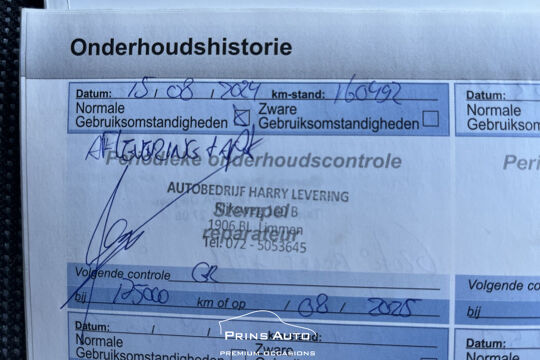 Onderhoudshistorie
Datum: 15, 08, 2024 km-stand: 160492
Normale Gebruiksomstandigheden Zware Gebruiksomstandigheden
Datum:
Normale
Gebruiksom
AFLEVERINGS + APK
Periodieke onderhoudscontrole
Peri
AUTOBEDRIJF HARRY LEVERING
1906 BL Limmen
Tel: 072 - 5053645
Stempel
reparateur
Volgende controle GR
bij 125000 km of op / 08 / 2025
Volgende co
bij
Datum: / /
Normale Zware
Gebruiksom
Datum:
Normale
PRINS AUTO
PREMIUM OCCASIONS